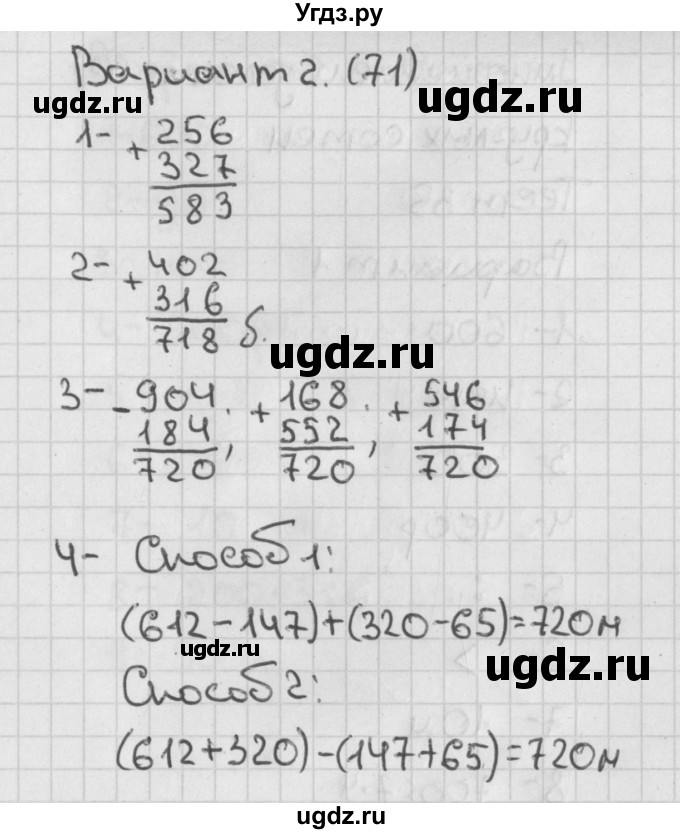 Угдз.ру
Вариант 2. (71)
ugdz.ru ugdz.ru
1- + 256
327
583
2- + 402
316
718 б.
ugdz.ru
3- - 904; + 168; + 546
184 552 174
720; 720, 720
ugdz.ru
4- Способ 1:
(612-147)+(320-65)=720м
ugdz.ru ugdz.ru
Способ 2:
(612+320)-(147+65)=720м
ugdz.ru
ugdz.ru